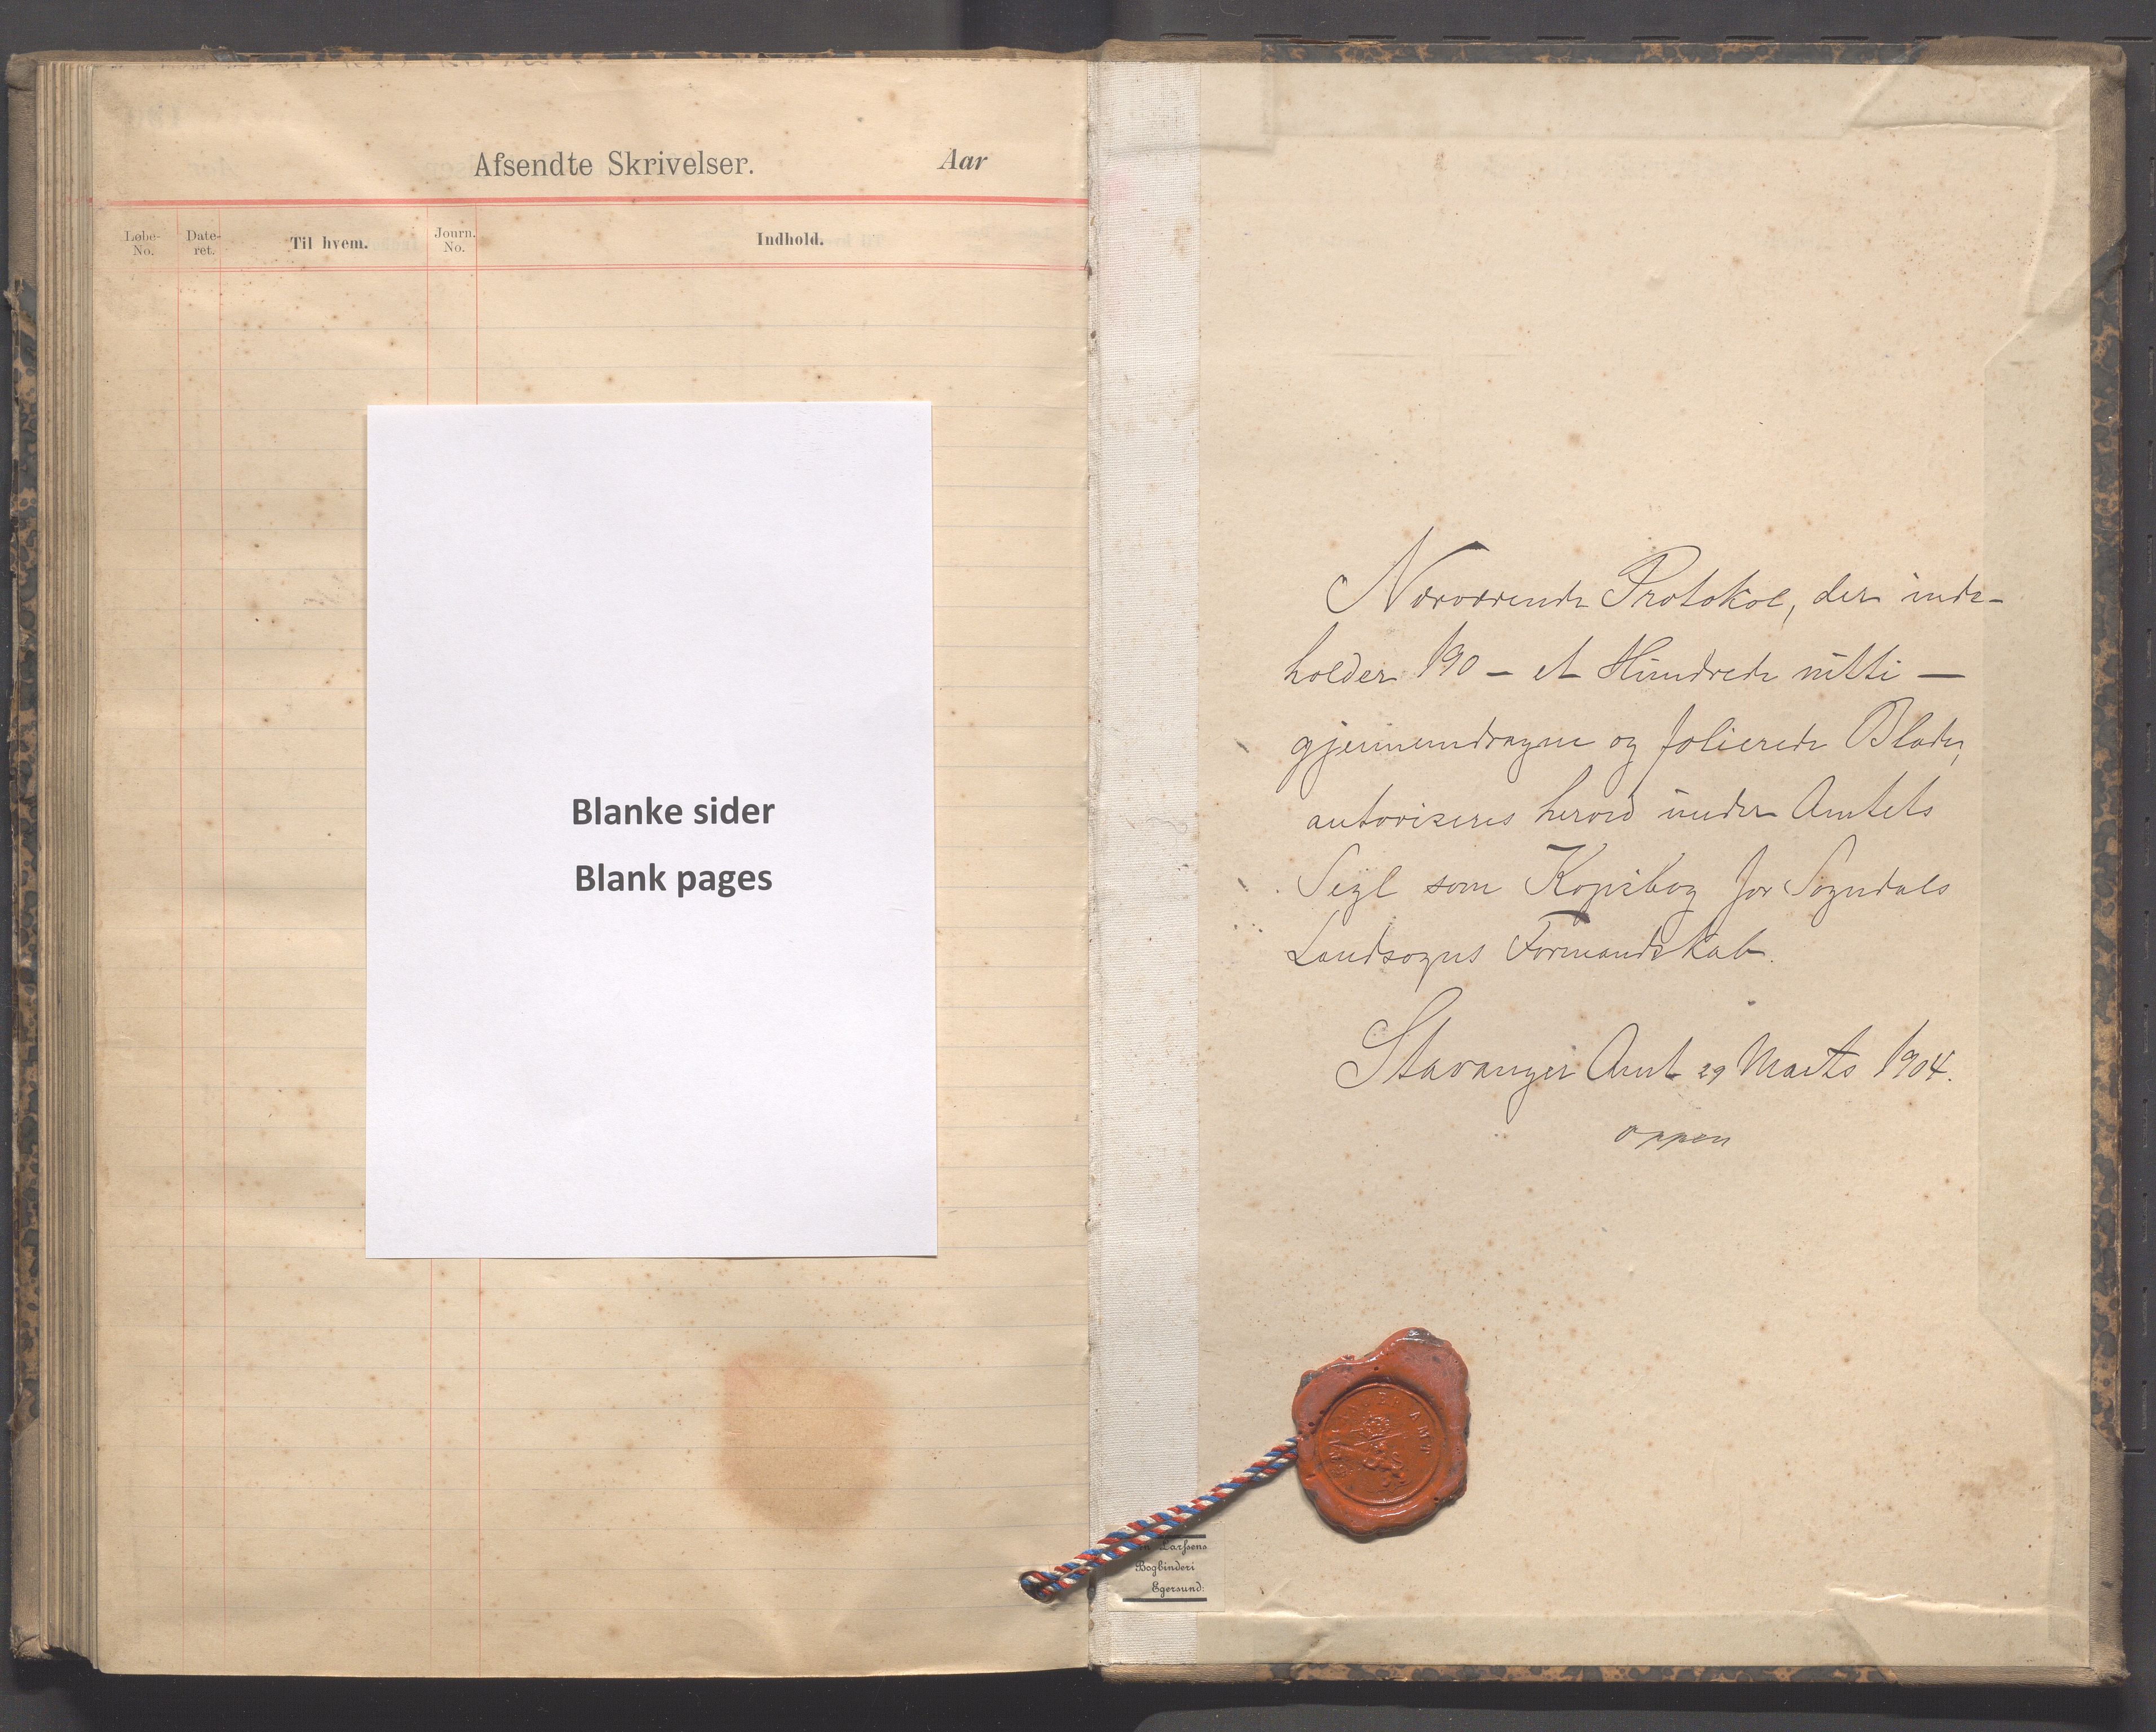 Afsendte Skrivelser.
Aar
Løbe-No.
Date-ret.
Til hvem.
Journ. No.
Indhold.
Blanke sider
Blank pages
Nærværende Protokol, der inde-
holder 190 – et Hundrede nitti –
gjennemdragne og folierede Blade,
autoriseres herved under Amtets
Segl som Kopibog for Sogndals
Landsogns Formandskab.
Stavanger Amt 29 Marts 1904.
STAVANGER AMT
Larssens
Bogbinderi
Egersund: